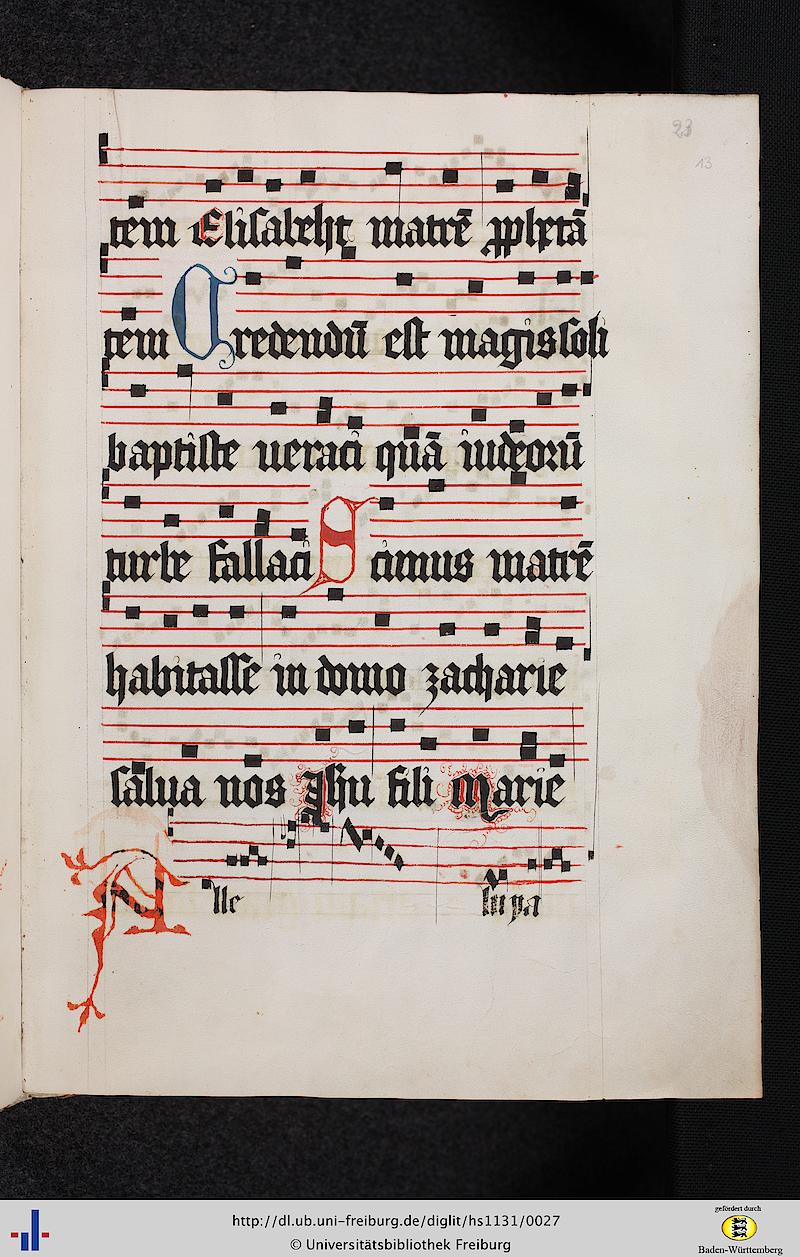 23
13
tem Elisabeht matrē ꝓphetā
tem Credendū est magis soli
baptiste ueraci quā iudeorū
turbe fallaci Scimus matrē
habitasse in domo zacharie
salua nos Jhu fili Marie
Alle luya
http://dl.ub.uni-freiburg.de/diglit/hs1131/0027
© Universitätsbibliothek Freiburg
gefördert durch
Baden-Württemberg